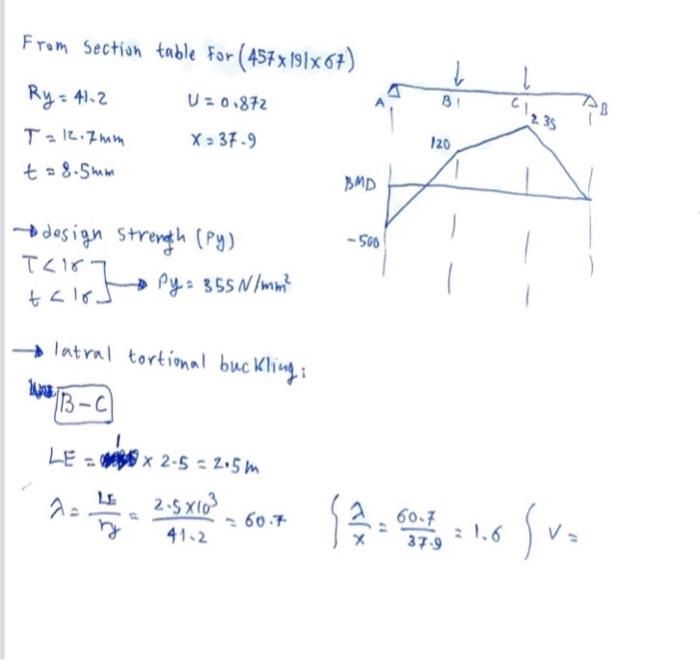 From section table for (457x191x67)
Ry = 41.2 U = 0.872
T = 12.7mm X = 37.9
t = 8.5mm
A B C B
120 235
BMD
-500
→ design strength (Py)
T < 16
t < 16 → Py = 355 N/mm²
→ latral tortional buckling:
B-C
LE = 1 x 2.5 = 2.5m
λ = LE/ry = 2.5x10³/41.2 = 60.7 { λ/x = 60.7/37.9 = 1.6 { V =